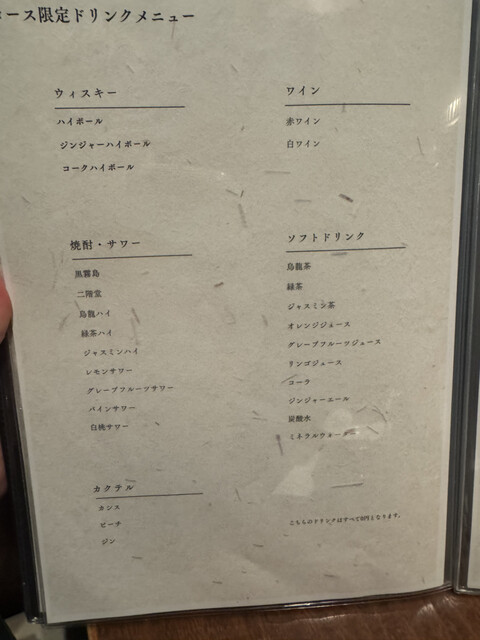 ース限定ドリンクメニュー
ウィスキー
ハイボール
ジンジャーハイボール
コークハイボール
ワイン
赤ワイン
白ワイン
焼酎・サワー
黒霧島
二階堂
烏龍ハイ
緑茶ハイ
ジャスミンハイ
レモンサワー
グレープフルーツサワー
パインサワー
白桃サワー
ソフトドリンク
烏龍茶
緑茶
ジャスミン茶
オレンジジュース
グレープフルーツジュース
リンゴジュース
コーラ
ジンジャーエール
炭酸水
ミネラルウォーター
カクテル
カシス
ピーチ
ジン
こちらのドリンクはすべて0円となります。